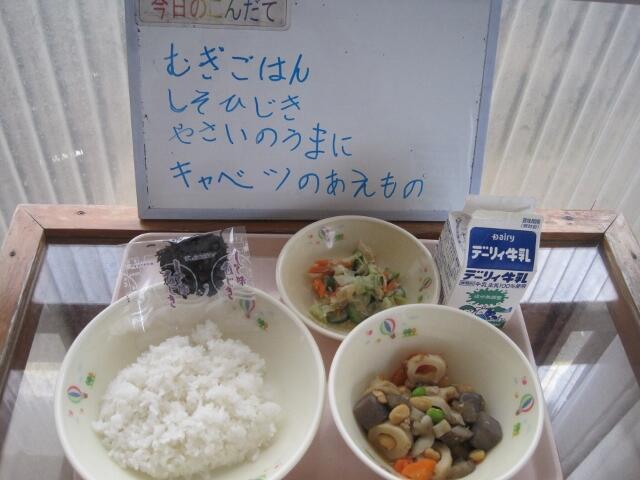 今日のこんだて
むぎごはん
しそひじき
やさいのうまに
キャベツのあえもの
Dairy
デーリィ牛乳
デーリィ牛乳